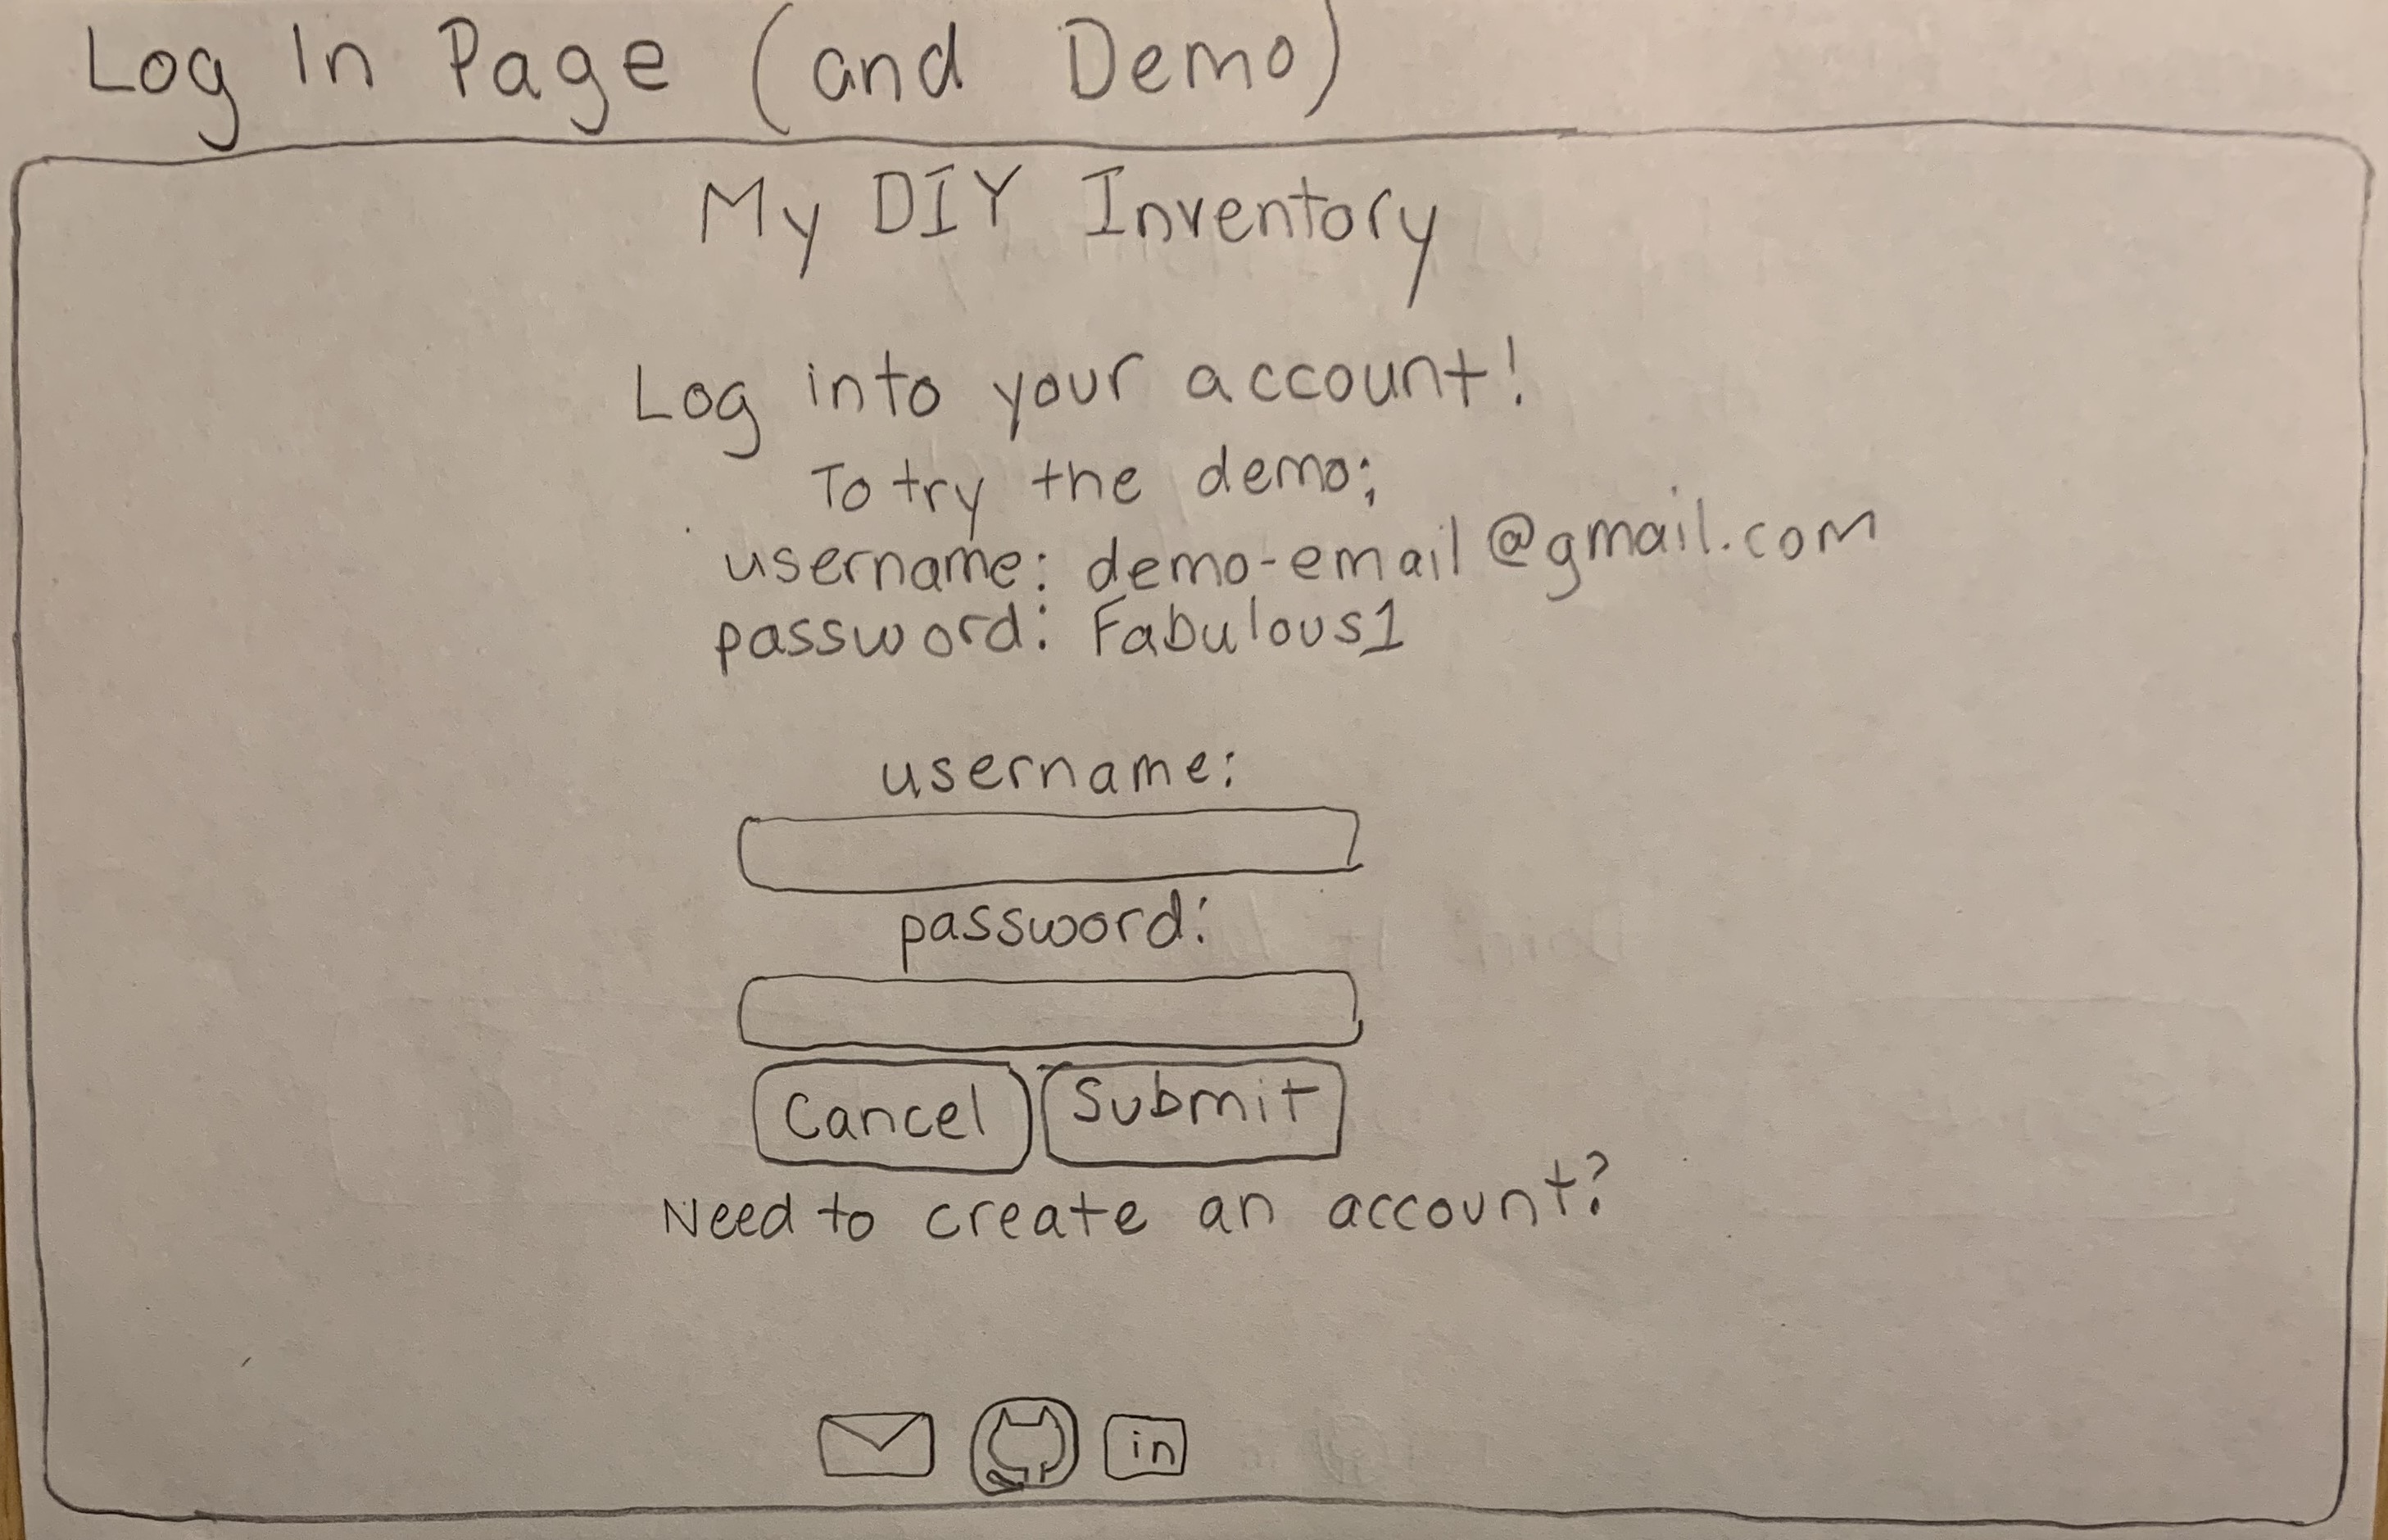 Log In Page (and Demo)
My DIY Inventory
Log into your account!
To try the demo:
username: demo-email@gmail.com
password: Fabulous1
username:
password:
Cancel Submit
Need to create an account?
in